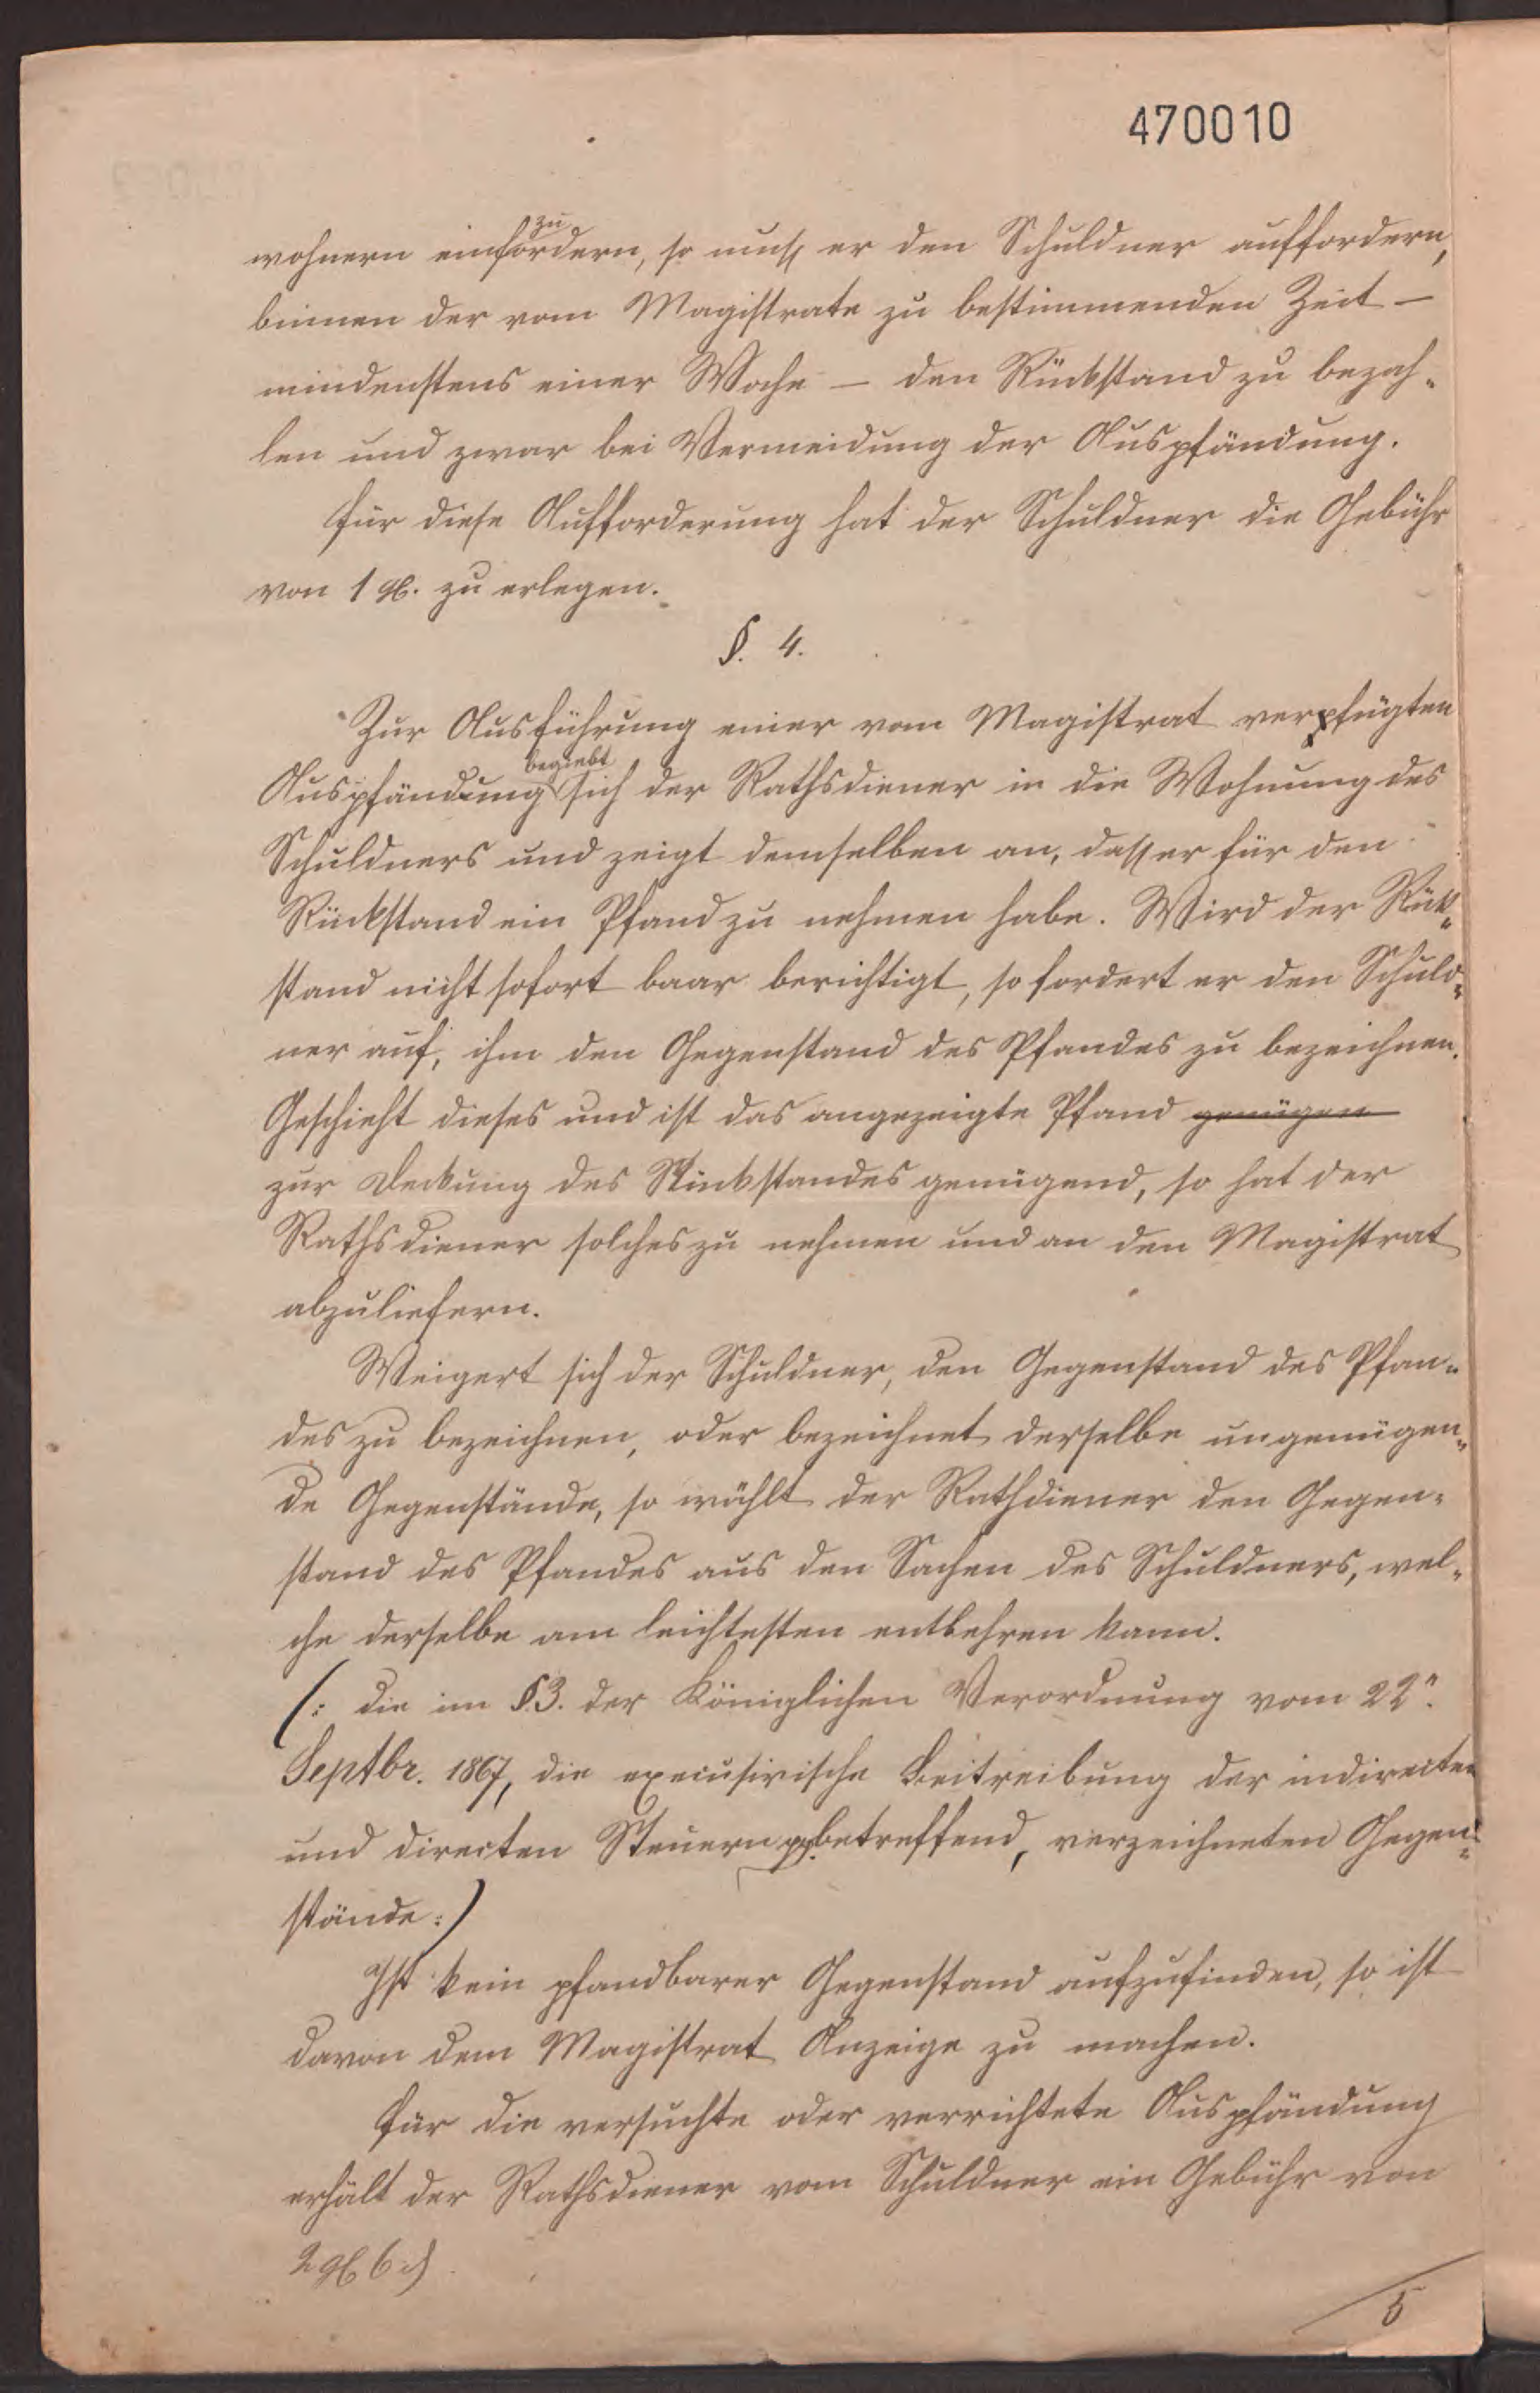 470010
wohnern einzufordern, so muß er den Schuldner auffordern,
binnen der vom Magistrate zu bestimmenden Zeit –
mindenstens einer Woche – den Rückstand zu bezah-
len und zwar bei Vermeidung der Auspfändung.
Für diese Aufforderung hat der Schuldner die Gebühr
von 1 gl. zu erlegen.
§. 4.
Zur Ausführung einer vom Magistrat verfügten
Auspfändung begiebt sich der Rathsdiener in die Wohnung des
Schuldners und zeigt demselben an, daß er für den
Rückstand ein Pfand zu nehmen habe. Wird der Rük-
stand nicht sofort baar berichtigt, so fordert er den Schuld-
ner auf, ihm den Gegenstand des Pfandes zu bezeichnen.
Geschieht dieses und ist das angezeigte Pfand genügen
zur Deckung des Rückstandes genügend, so hat der
Rathsdiener solches zu nehmen und an den Magistrat
abzuliefern.
Weigert sich der Schuldner, den Gegenstand des Pfan-
des zu bezeichnen, oder bezeichnet derselbe ungenügen-
de Gegenstände, so wählt der Rathdiener den Gegen-
stand des Pfandes aus den Sachen des Schuldners, wel-
che derselbe am leichtesten entbehren kann.
(: die im §3. der Königlichen Verordnung vom 22n.
Septbr. 1867, die executivische Beitreibung der indirecten
und directen Steuern pp. betreffend, verzeichneten Gegen-
stände :)
Ist kein pfandbarer Gegenstand aufzufinden, so ist
davon dem Magistrat Anzeige zu machen.
Für die versuchte oder verrichtete Auspfändung
erhält der Rathsdiener vom Schuldner ein Gebühr von
2 gl 6 d
5